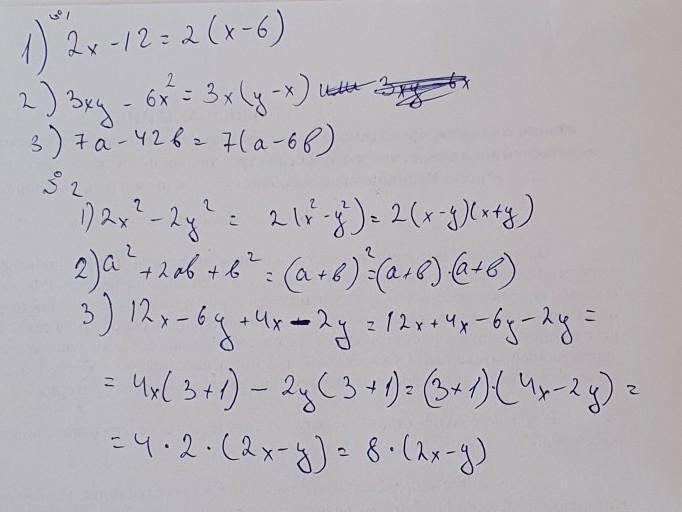 №1
1) 2x - 12 = 2(x-6)
2) 3xy - 6x² = 3x(y-x) или
3) 7a - 42в = 7(a-6в)
№ 2
1) 2x² - 2y² = 2(x²-y²) = 2(x-y)(x+y)
2) a² + 2ab + b² = (a+b)² = (a+b)·(a+b)
3) 12x - 6y + 4x - 2y = 12x + 4x - 6y - 2y =
= 4x(3+1) - 2y(3+1) = (3+1)·(4x-2y) =
= 4·2·(2x-y) = 8·(2x-y)